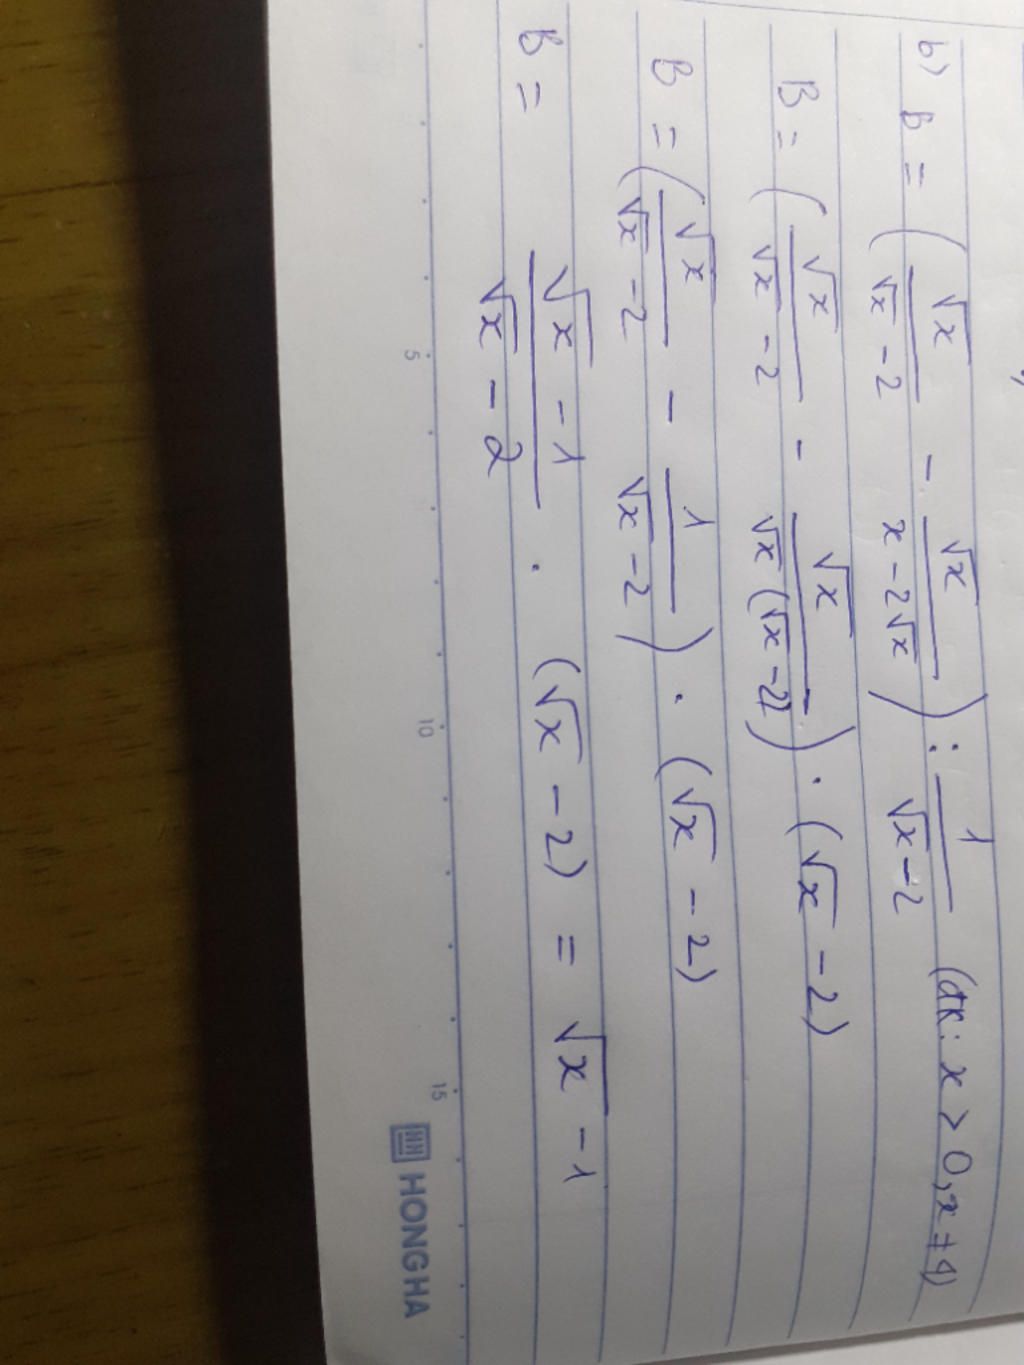 b) B = ( √x / (√x - 2) - √x / (x - 2√x) ) : 1 / (√x - 2) (đk: x > 0, x ≠ 4)
B = ( √x / (√x - 2) - √x / (√x (√x - 2)) ) . (√x - 2)
B = ( √x / (√x - 2) - 1 / (√x - 2) ) . (√x - 2)
B = (√x - 1) / (√x - 2) . (√x - 2) = √x - 1
5 10 15
HONG HA